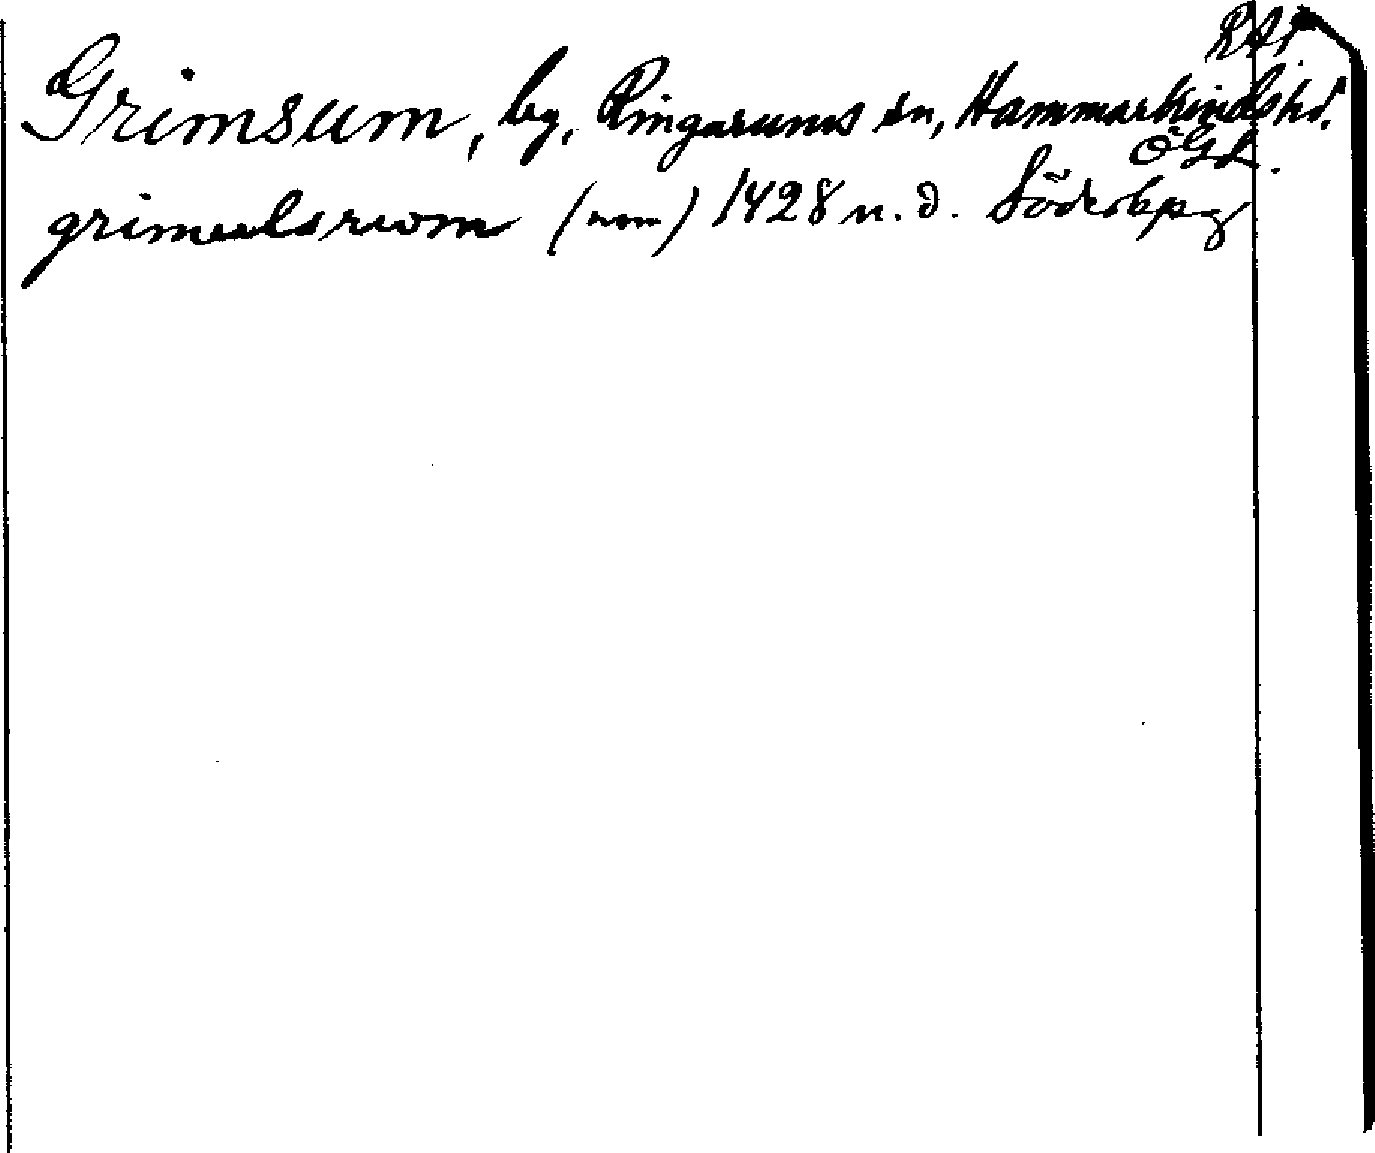 RAp
Grimsum, by, Ringarums sn, Hammarkinds hd.
ÖGL.
grimulsrwm (nom) 1428 n. d. Söderkpg